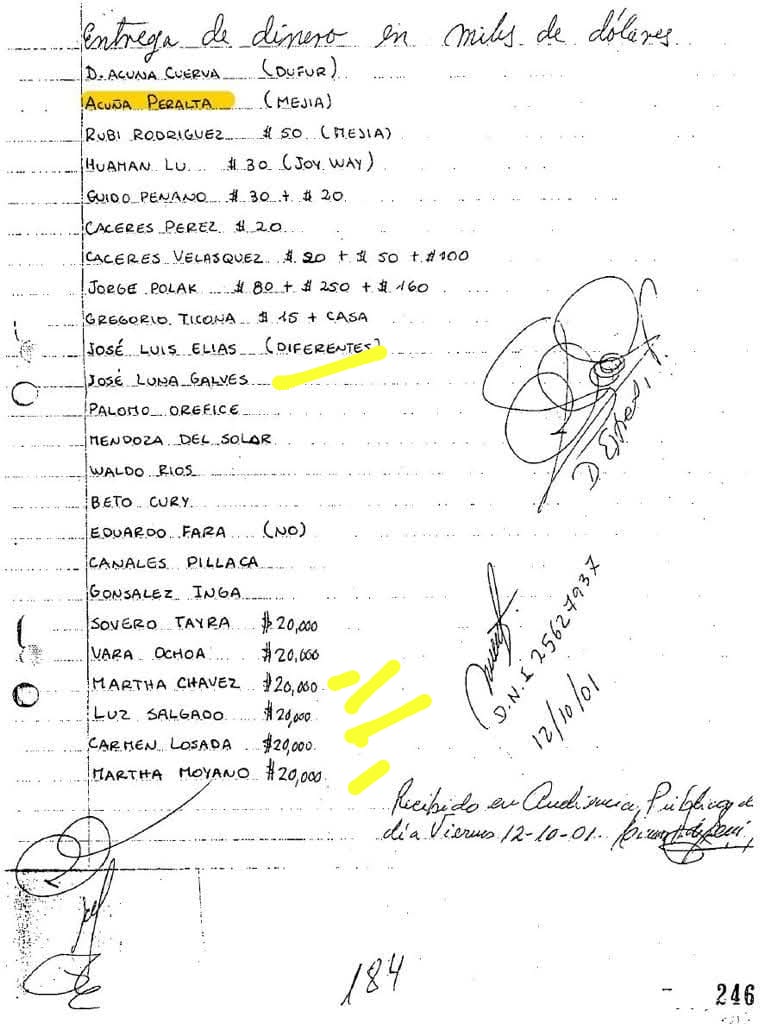 Entrega de dinero en miles de dólares
D. ACUÑA CUERVA (DUFUR)
ACUÑA PERALTA (MEJIA)
RUBI RODRIGUEZ $ 50 (MEJIA)
HUAMAN LU $ 30 (JOY WAY)
GUIDO PENANO $ 30 + $ 20
CACERES PEREZ $ 20
CACERES VELASQUEZ $ 20 + $ 50 + $100
JORGE POLAK $ 80 + $ 250 + $ 160
GREGORIO TICONA $ 15 + CASA
JOSÉ LUIS ELIAS (DIFERENTES)
JOSÉ LUNA GALVES
PALOMO OREFICE
MENDOZA DEL SOLAR
WALDO RIOS
BETO CURY
EDUARDO FARA (NO)
CANALES PILLACA
GONSALEZ INGA
SOVERO TAYRA $ 20,000
VARA OCHOA $ 20,000
MARTHA CHAVEZ $20,000
LUZ SALGADO $20,000
CARMEN LOSADA $20,000
MARTHA MOYANO $20,000
D.N.I 25627937
12/10/01
Recibido en Audiencia Pública de
día Viernes 12-10-01.
184
246